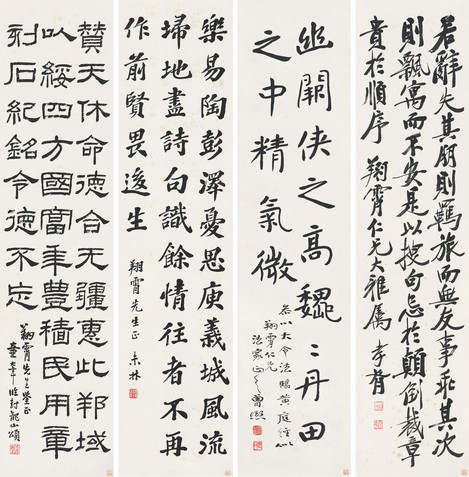 若辭失其朋則羈旅而無友事乖其次
則飄寓而不安是以搜句忌於顛倒裁章
貴於順序 翔霄仁兄大雅屬 孝胥
幽闕俠之高巍〻丹田
之中精氣微
以大令法臨黃庭經
翔霄仁兄
法家正之 曾熙
樂易陶彭澤憂思庾義城風流
掃地盡詩句識餘情往者不再
作前賢畏後生
翔霄先生正
贊天休命德合无疆惠此邦域
以綏四方國富年豊穡民用章
刻石紀銘令德不忘
翔霄先生鑒正
臨封龍山頌